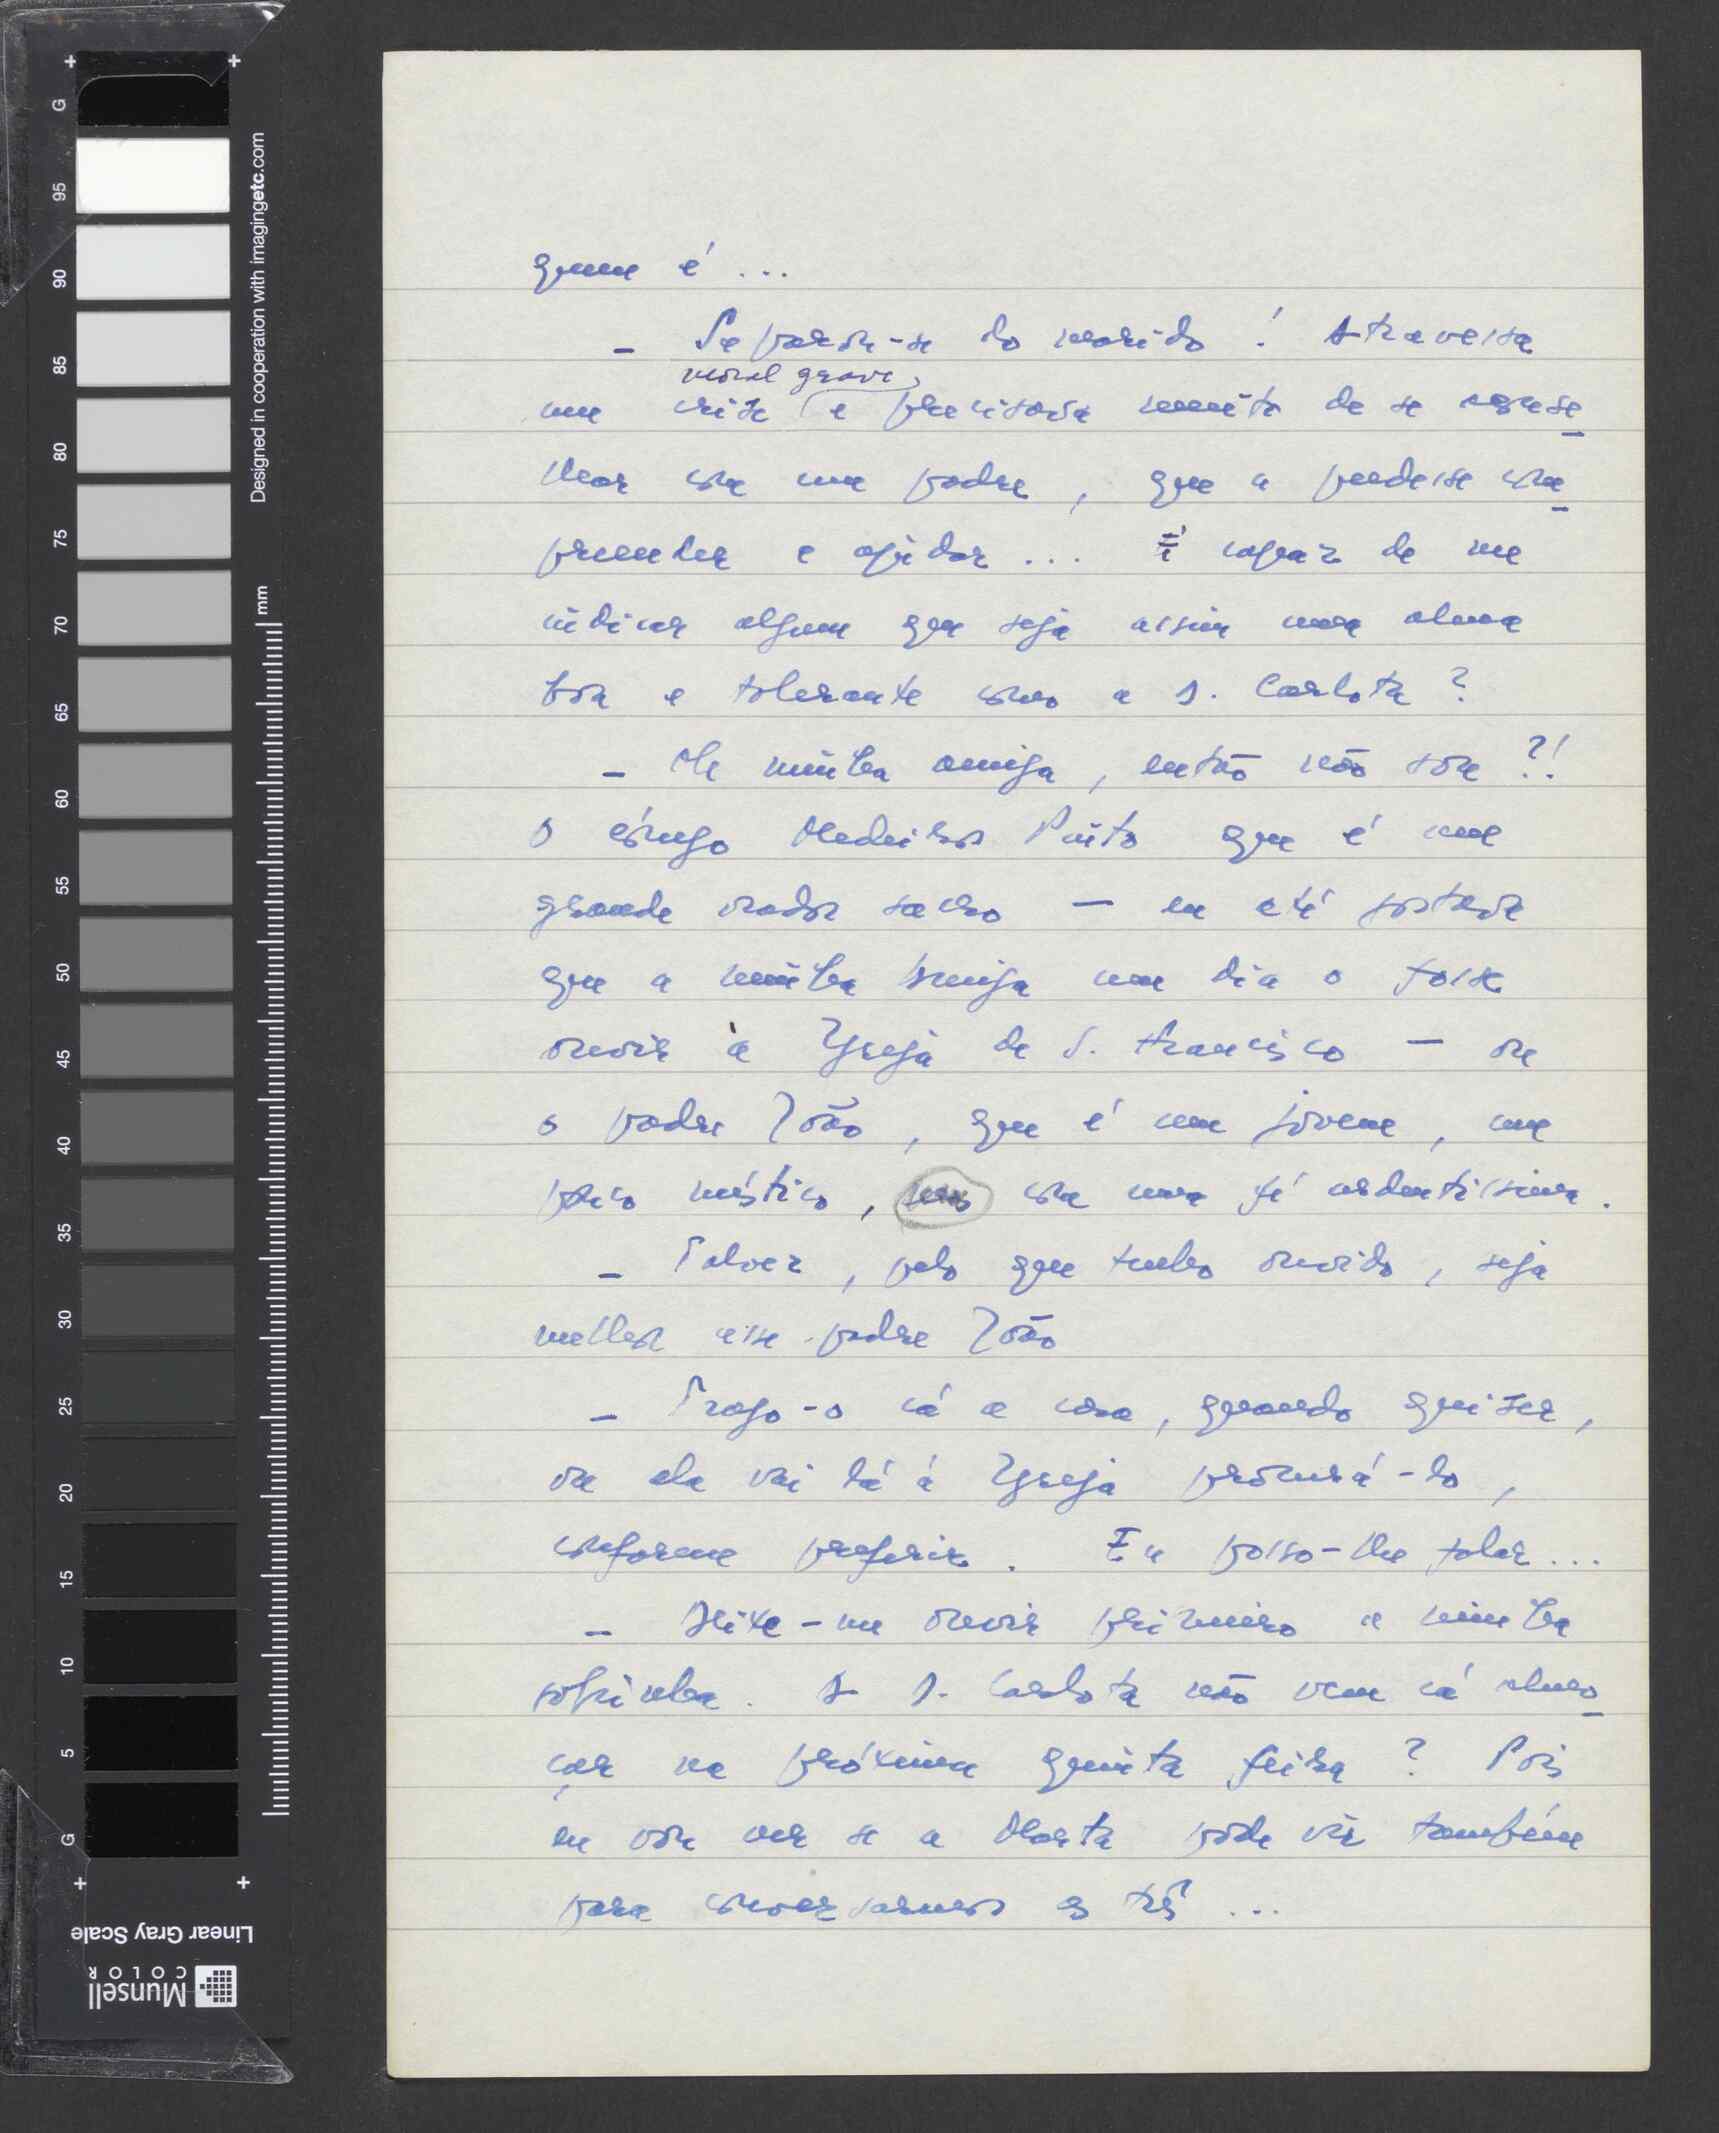 quem é ...
– Separou-se do marido! Atravessa
moral grave,
um crise e precisava muito de se acense
lhar com um padre, que a pudesse com
preender e ajudar ... É capaz de me
indicar algum que seja assim uma alma
boa e tolerante como a D. Carlota?
– Oh minha amiga, então não sou?!
O cónego Medeiros Pinto que é um
grande orador sacro — eu até gostava
que a minha amiga um dia o fosse
ouvir à Igreja de S. Francisco — ou
o padre João, que é um jovem, um
pouco místico, mas com uma fé ardentíssima.
– Talvez, pelo que tenho ouvido, seja
melhor esse padre João
– Trago-o cá a casa, quando quiser,
ou ela vai lá à Igreja procurá-lo,
conforme preferir. Eu posso-lhe falar...
– Deixe-me ouvir primeiro a minha
sobrinha. A D. Carlota não vem cá almo
çar na próxima quinta feira? Pois
eu vou ver se a Marta pode vir também
para conversarmos as três ...
Designed in cooperation with imagingetc.com
mm
G 95 90 85 80 75 70 65 60 55 50 45 40 35 30 25 20 15 10 5 G
Linear Gray Scale
Munsell
COLOR